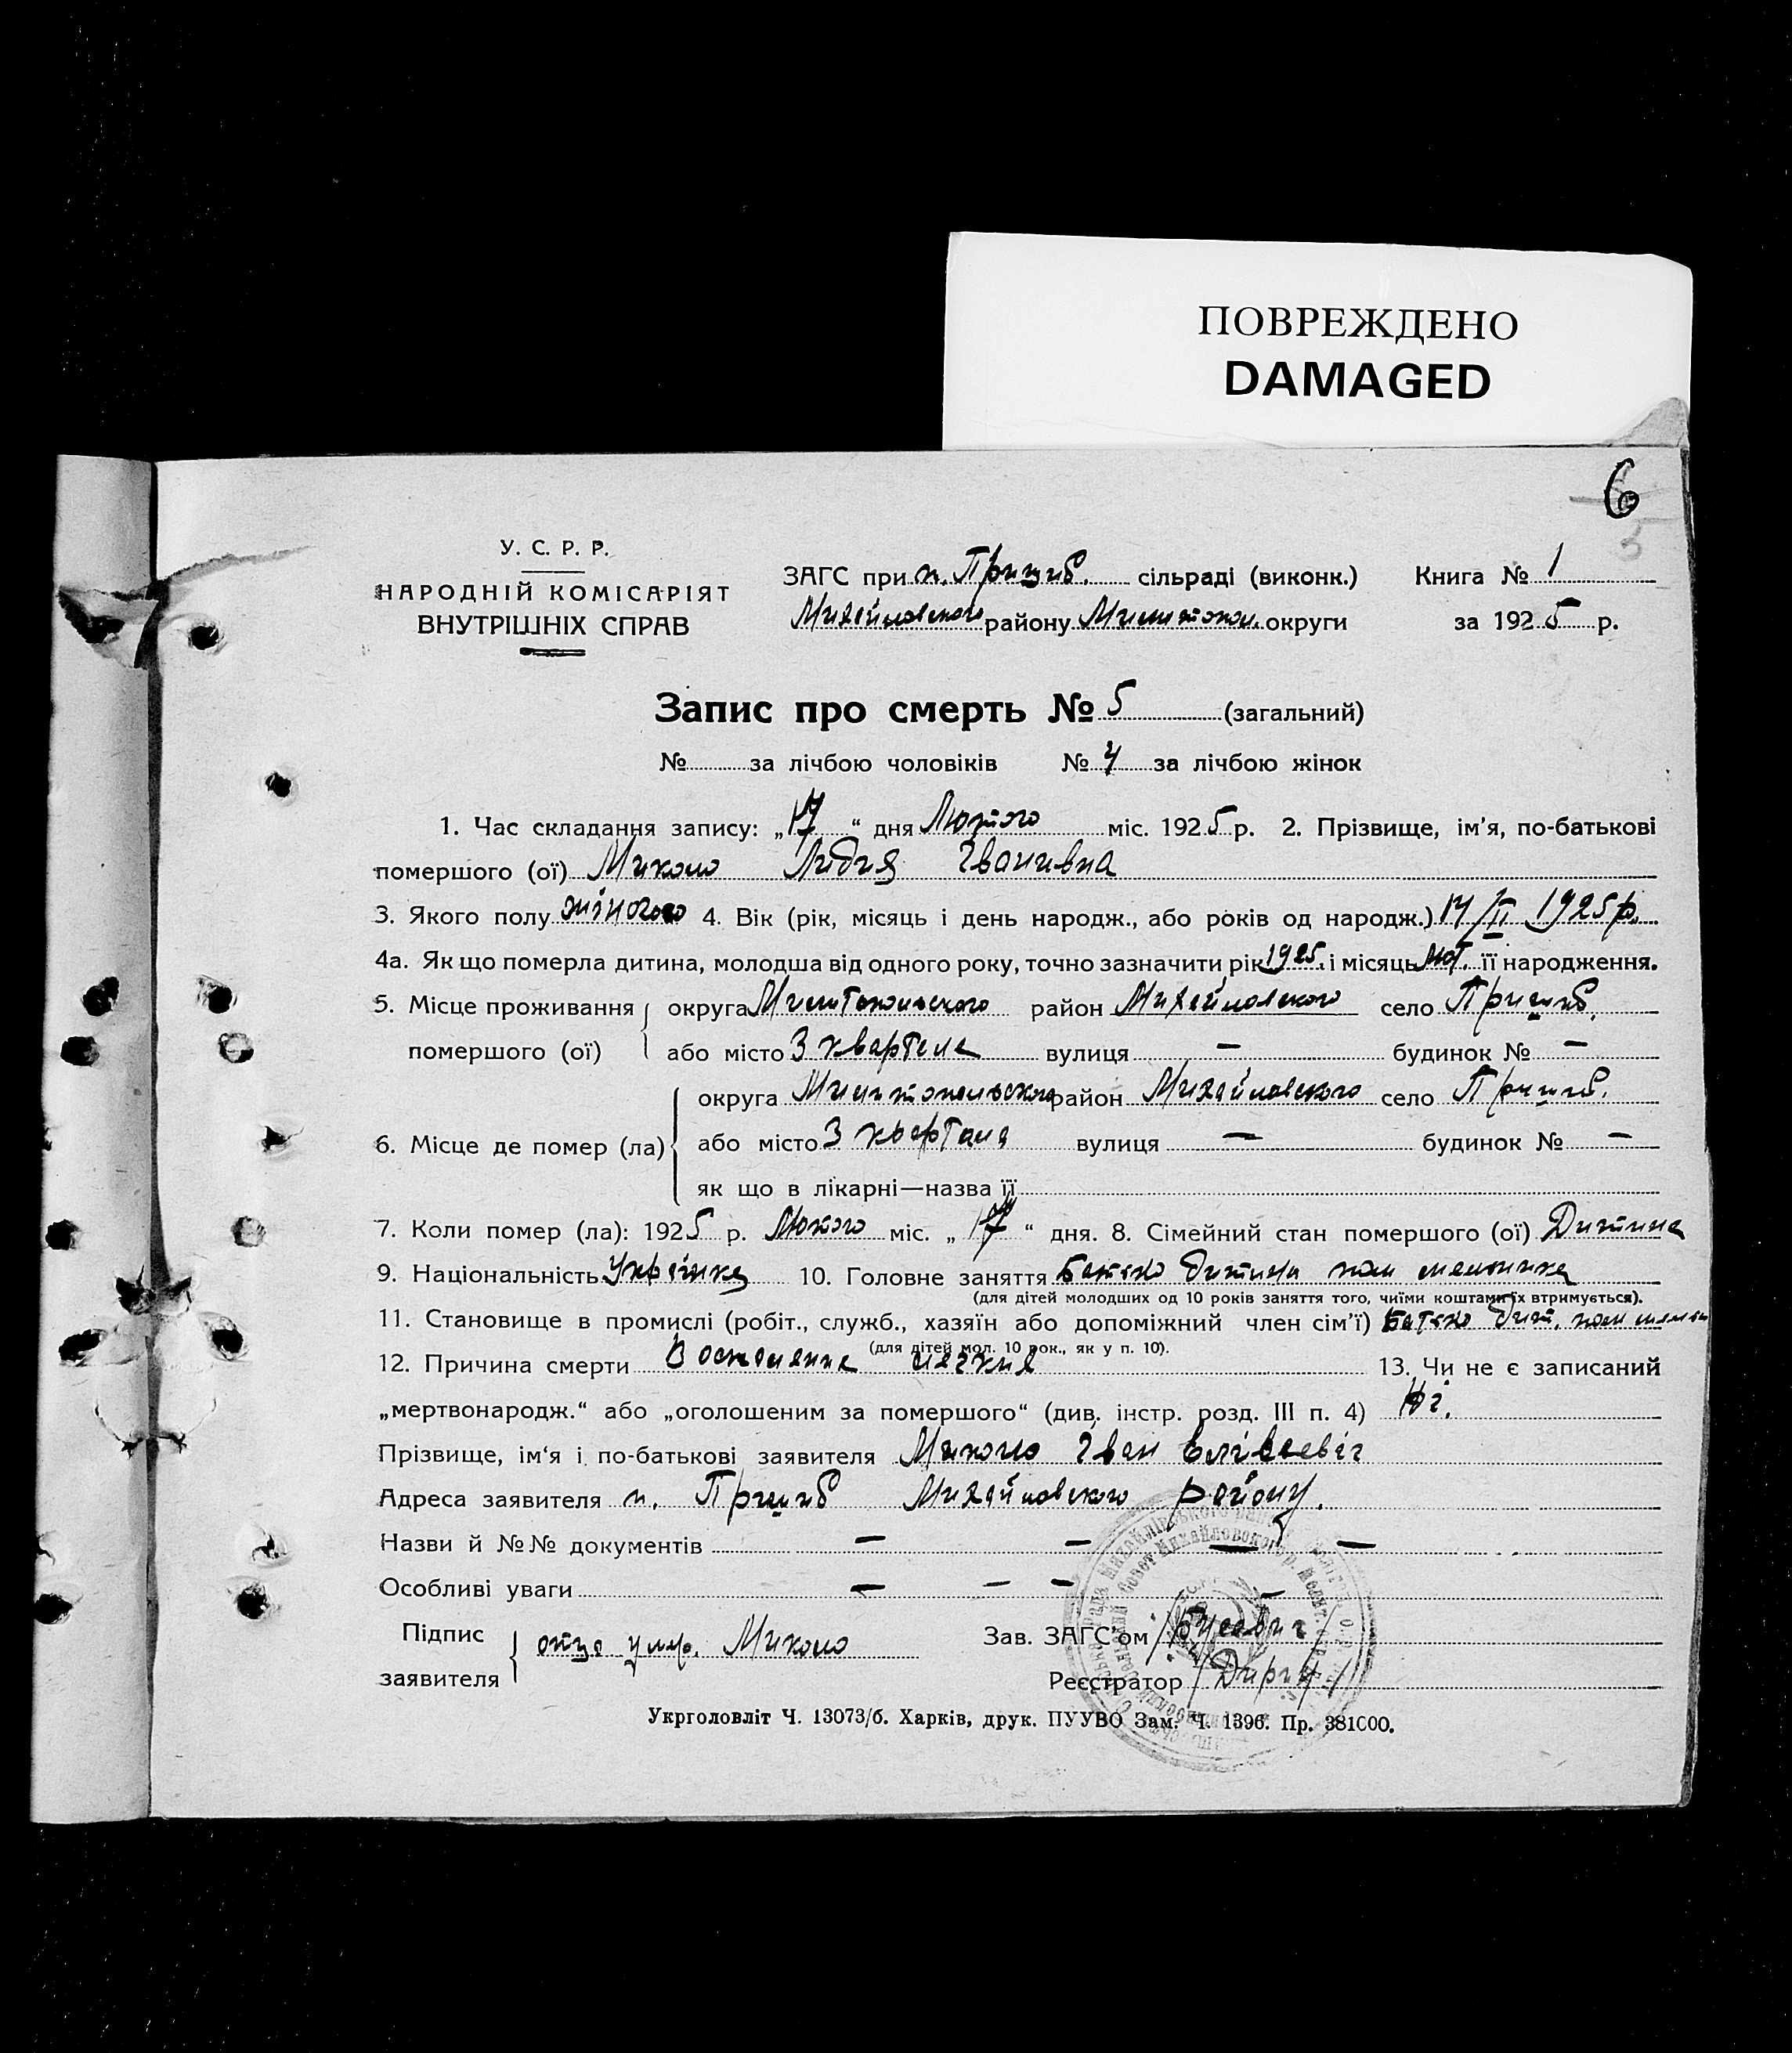 ПОВРЕЖДЕНО
DAMAGED
6
5
У. С. Р. Р.
НАРОДНІЙ КОМІСАРІЯТ
ВНУТРІШНІХ СПРАВ
ЗАГС при п. Пришиб. сільраді (виконк.) Книга № 1
Михайловского району Мелитопол. округи за 1925 р.
Запис про смерть № 5 (загальний)
№ за лічбою чоловіків № 4 за лічбою жінок
1. Час складання запису: „17“ дня Лютого міс. 1925 р. 2. Прізвище, ім’я, по-батькові
помершого (ої) Лидия Іванивна
3. Якого полу жіночого 4. Вік (рік, місяць і день народж., або років од народж.) 14/II 1925 р.
4а. Як що померла дитина, молодша від одного року, точно зазначити рік 1925. і місяць Лют. її народження.
5. Місце проживання округа Мелитопольского район Михайловского село Пришиб.
помершого (ої) або місто 3 квартала вулиця — будинок № —
округа Мелитопольского район Михайловского село Пришиб.
6. Місце де помер (ла) або місто 3 квартала вулиця — будинок № —
як що в лікарні—назва її
7. Коли помер (ла): 1925 р. Лютого міс. „17“ дня. 8. Сімейний стан помершого (ої) Дитина
9. Національність Українка 10. Головне заняття Батько дитини пом мельника
(для дітей молодших од 10 років заняття того, чиїми коштами їх втримується).
11. Становище в промислі (робіт., служб., хазяїн або допоміжний член сім’ї) Батько дит. пом мельн
(для дітей мол. 10 рок., як у п. 10).
12. Причина смерти Воспаление легких 13. Чи не є записаний
„мертвонародж.“ або „оголошеним за помершого“ (див. інстр. розд. III п. 4) Ні.
Прізвище, ім‘я і по-батькові заявителя Іван Елісеевіч
Адреса заявителя п. Пришиб Михайловского району.
Назви й №№ документів — — — —
Особливі уваги — — —
Підпис
заявителя
Зав. ЗАГС‘ом
Реєстратор
Укрголовліт Ч. 13073/б. Харків, друк. ПУУВО Зам. Ч. 1396. Пр. 381000.